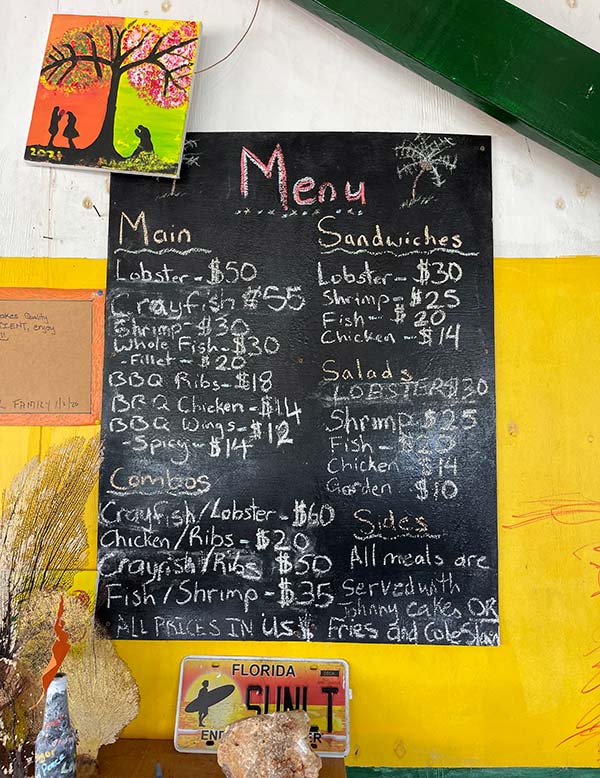 2021
Menu
Main
Lobster - $50
Crayfish $55
Shrimp - $30
Whole Fish - $30
- Fillet - $20
BBQ Ribs - $18
BBQ Chicken - $14
BBQ Wings - $12
- Spicy - $14
Combos
Crayfish/Lobster - $60
Chicken/Ribs - $20
Crayfish/Ribs $50
Fish/Shrimp - $35
ALL PRICES IN US$
Sandwiches
Lobster - $30
Shrimp - $25
Fish - $20
Chicken - $14
Salads
LOBSTER $30
Shrimp $25
Fish - $20
Chicken $14
Garden $10
Sides
All meals are
Served with
Johnny cakes OR
Fries and Coleslaw
Quality
enjoy
FAMILY
FLORIDA
SUNLT